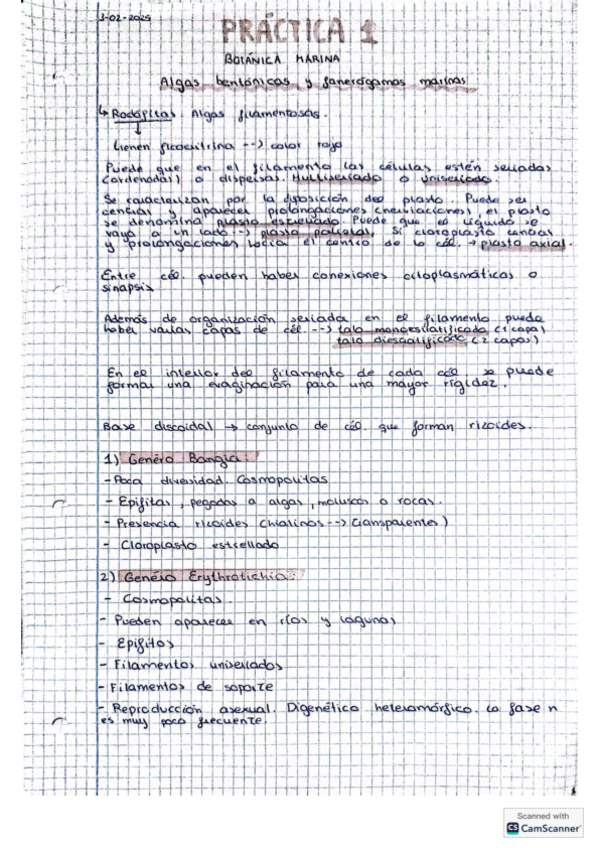 3-02-2025
PRÁCTICA 1
BOTÁNICA MARINA
Algas bentónicas y fanerógamas marinas
↳ Rodófitas. Algas filamentosas.
↓
tienen ficoeritrina --> color rojo
Puede que en el filamento las células estén seriadas
(ordenadas) o dispersas. Multiseriado o uniseriado.
Se caracterizan por la disposición del plasto. Puede ser
central y aparecer prolongaciones (nerviaciones), el plasto
se denomina plasto estrellado. Puede que el líquido se
vaya a un lado --> plasto parietal. Si cloroplasto central
y prolongaciones hacia el centro de la cél. → plasto axial.
Entre cél. pueden haber conexiones citoplasmáticas o
sinapsis
Además de organización seriada en el filamento puede
haber varias capas de cél. --> talo monoestratificado (1 capa)
talo diestratificado (2 capas)
En el interior del filamento de cada cél. se puede
formar una evaginación para una mayor rigidez.
Base discoidal → conjunto de cél. que forman rizoides.
1) Genéro Bangia:
- Poca diversidad. Cosmopolitas
- Epífitas, pegadas a algas, moluscos o rocas.
- Presencia rizoides (hialinos --> transparentes)
- Cloroplasto estrellado
2) Genéro Erythrotichia:
- Cosmopolitas.
- Pueden aparecer en ríos y lagunas
- Epífitos
- Filamentos uniseriados
- Filamentos de soporte
- Reproducción asexual. Digenético heteromórfico. La fase n
es muy poco frecuente.
Scanned with
CS CamScanner